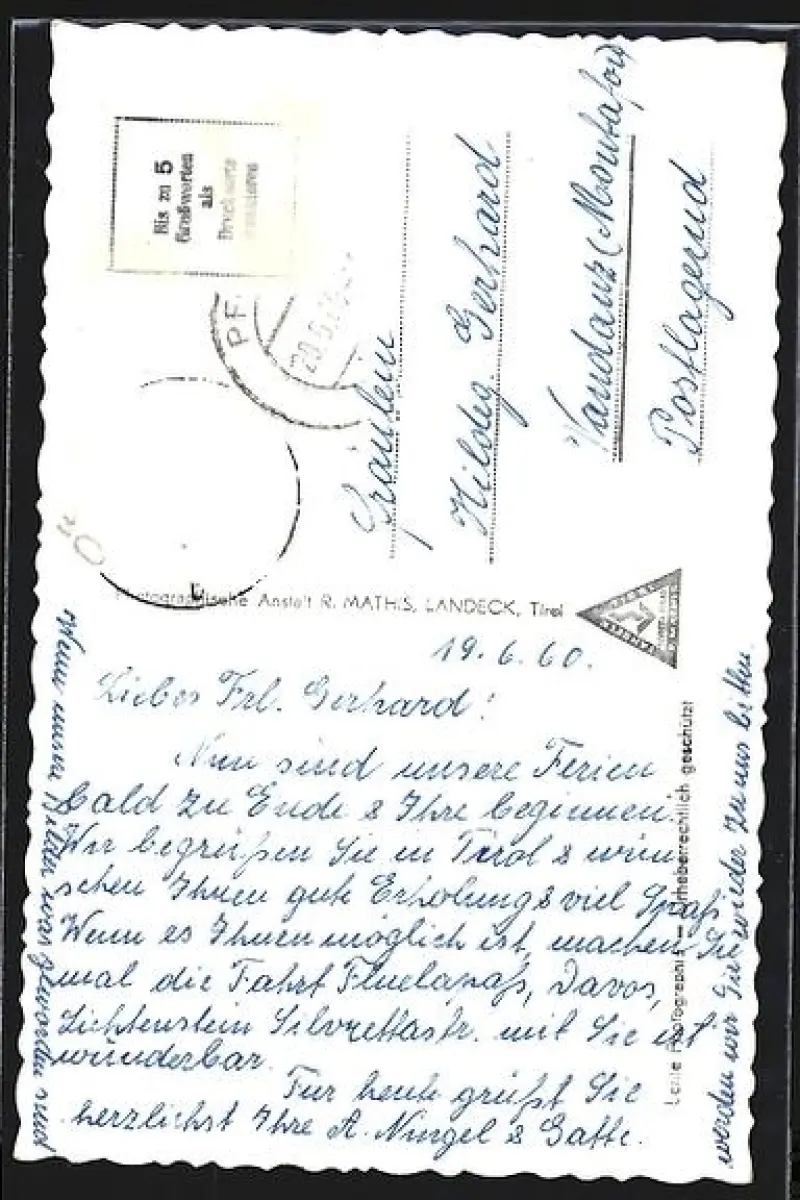 Bis zu 5
Grußworten
als
Drucksache
PF
20.6.
Fräulein
Hildeg. Gerhard
Vandanz (Montafon)
Postlagernd
Photographische Anstalt R. MATHIS, LANDECK, Tirol
Echte Photographie – Urheberrechtlich geschützt
19. 6. 60.
Liebes Frl. Gerhard!
Nun sind unsere Ferien
bald zu Ende & Ihre beginnen.
Wir begrüßen Sie in Tirol & wün
schen Ihnen gute Erholung & viel Spaß
Wenn es Ihnen möglich ist, machen Sie
mal die Fahrt Fluelapaß, Davos,
Lichtenstein Silvrettastr. mit Sie ist
wunderbar.
Für heute grüßt Sie
herzlichst Ihre A. Ningel & Gatte.
Wenn unsere Bilder was geworden sind
werden wir Sie wieder zu uns bitten.